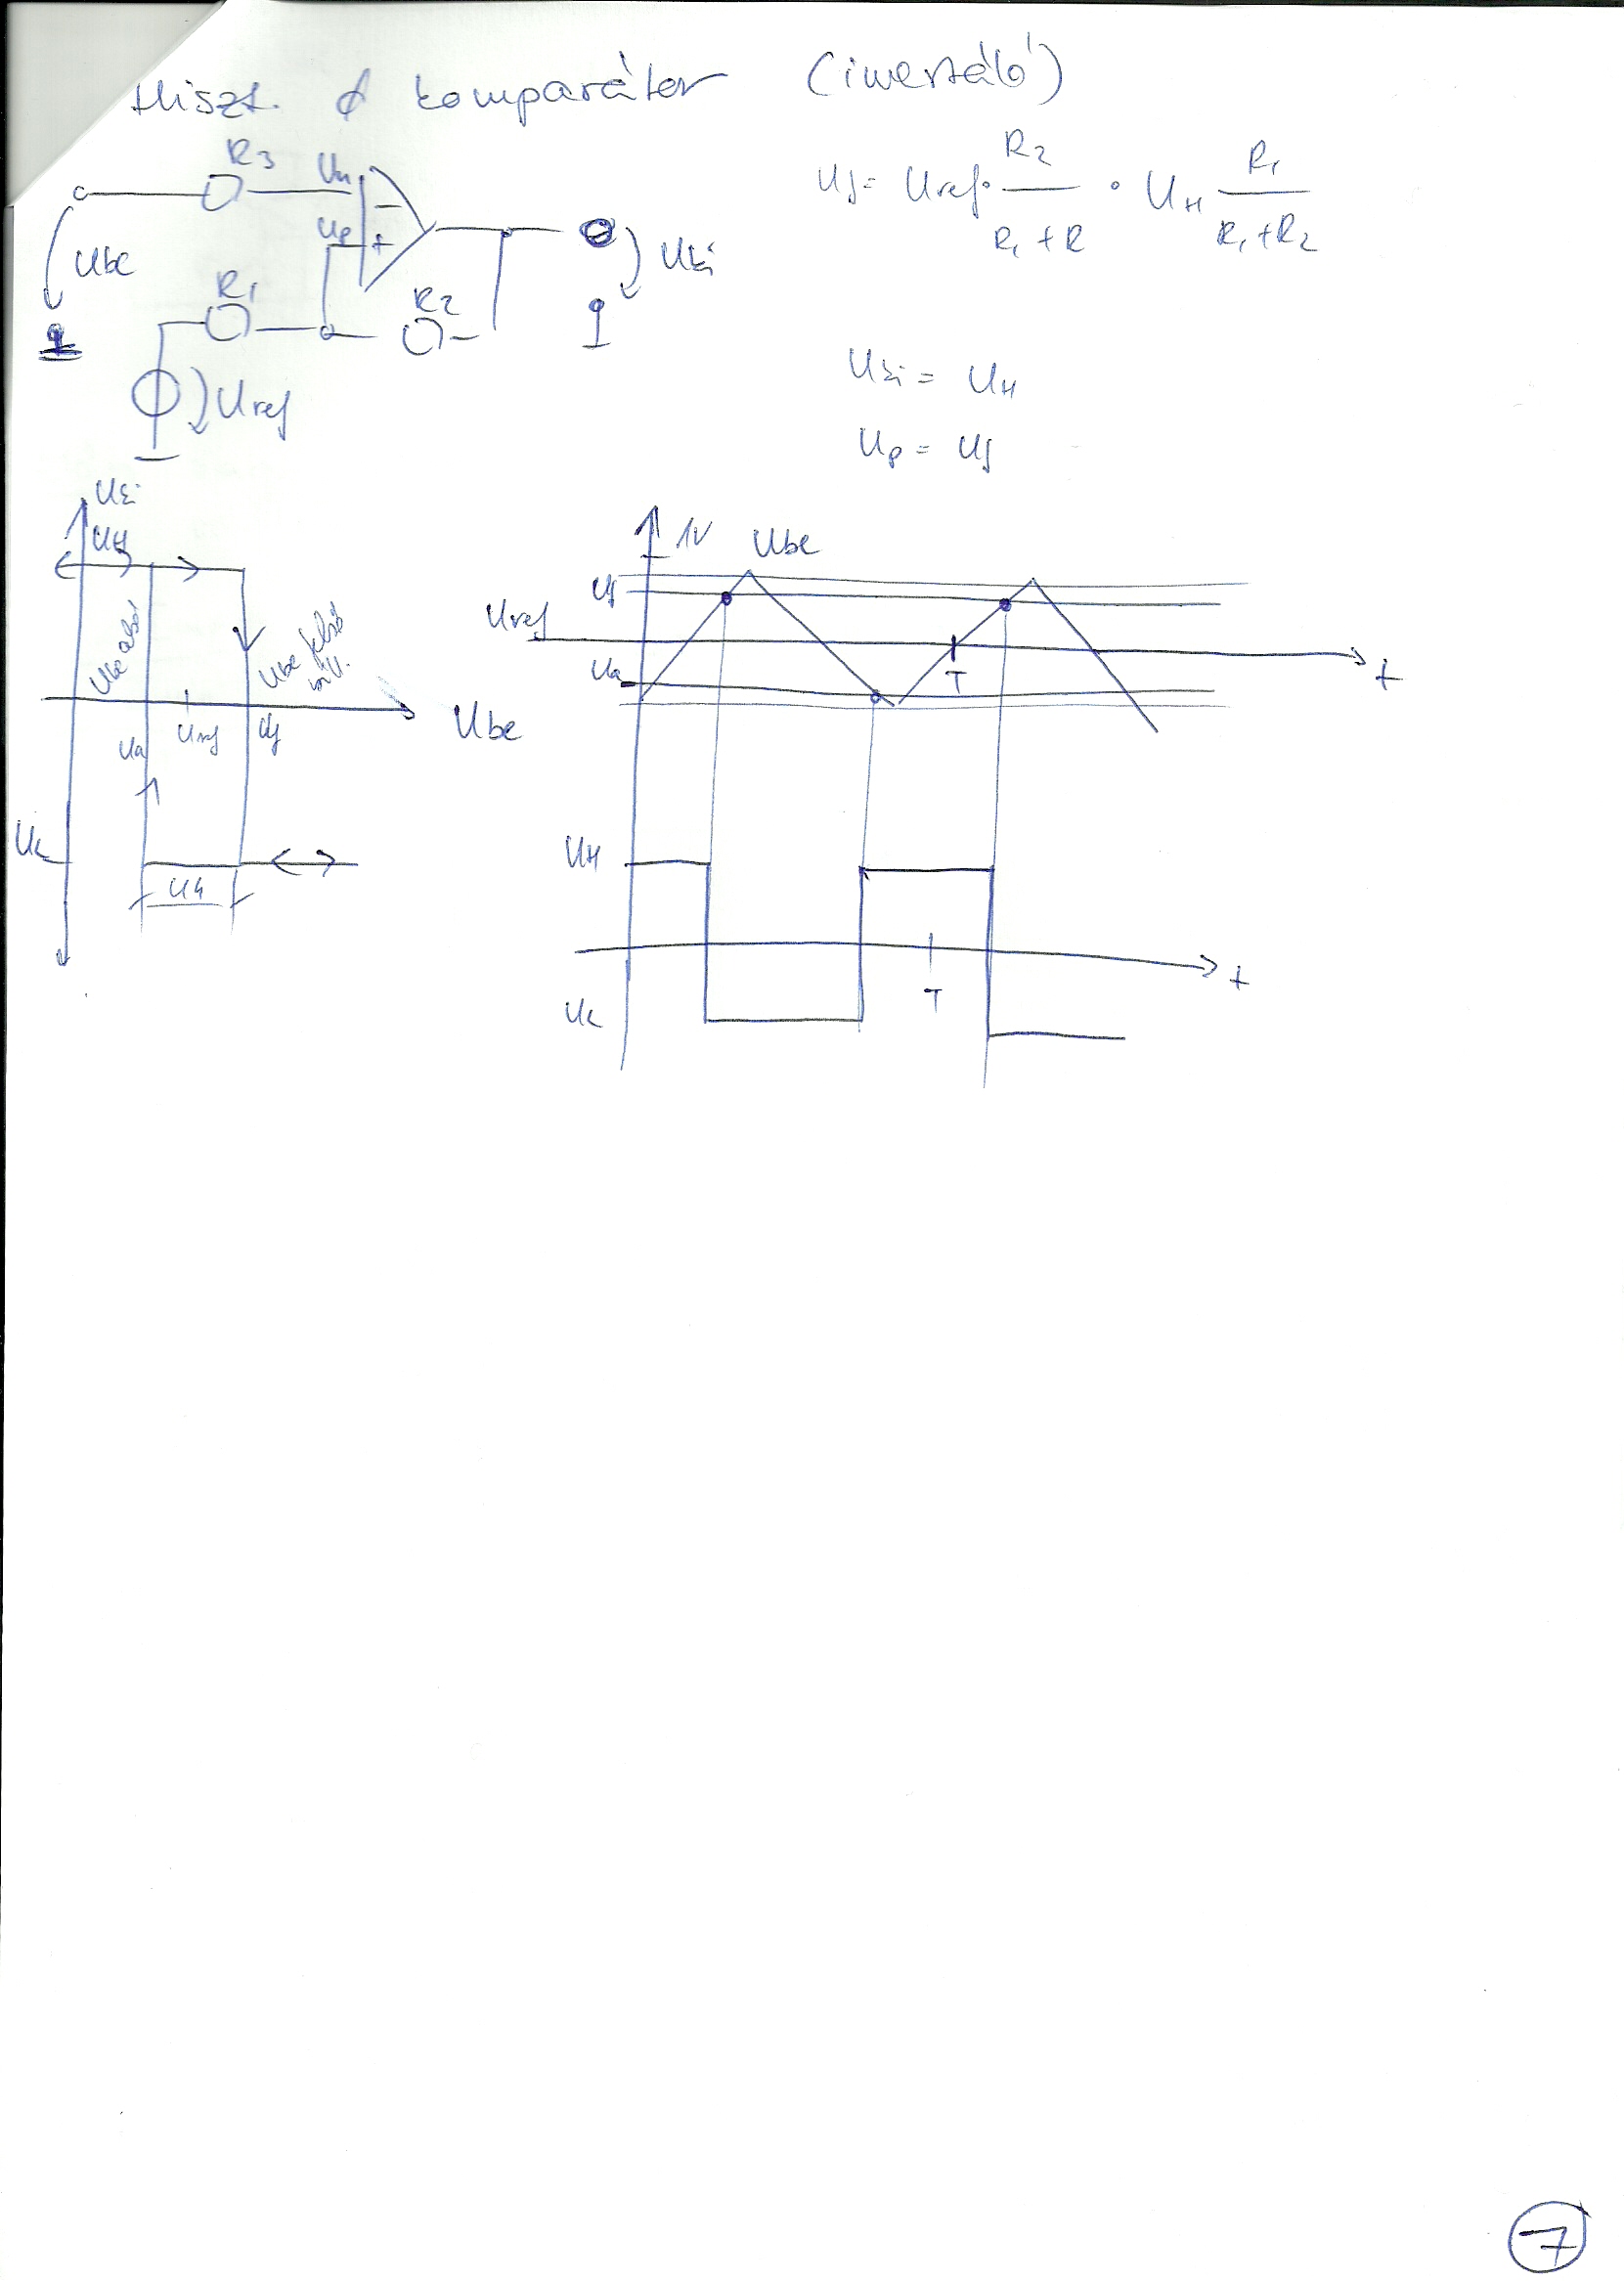 Hiszt. komparátor (invertáló)
R3
Un
Up
Ube
R1
R2
Uki
Uref
Uf = Uref · R2 / R1 + R · UH R1 / R1 + R2
Uki = UH
Up = Uf
Uki
UH
Ube alsó
Ube felső
Ua
Uref
Uf
Ube
UL
UH
1V
Ube
Uf
Uref
Ua
T
t
UH
UL
T
t
7